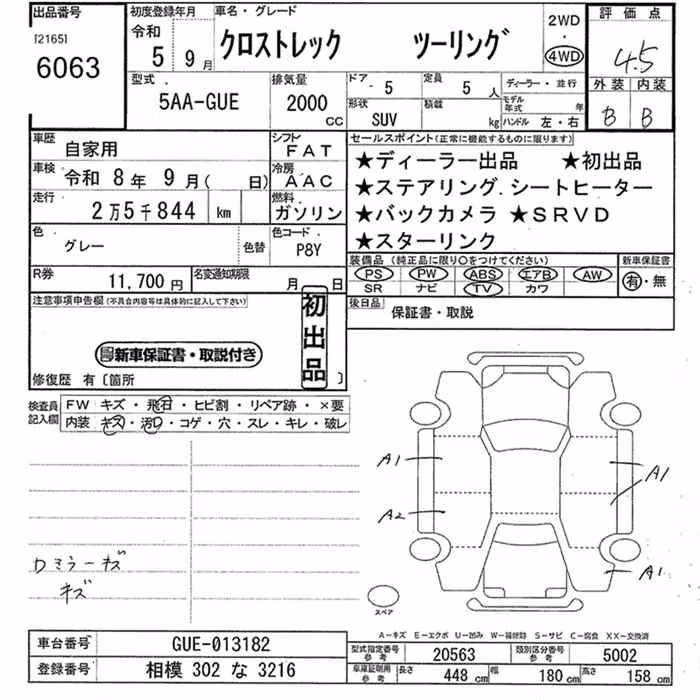 出品番号 初度登録年月 車名・グレード 2WD 評価点
[2165] 令和 ・
6063 5 9月 クロストレック ツーリング 4WD 4.5
型式 排気量 ドア 5 定員 5人 ディーラー・並行 外装 内装
5AA-GUE 2000cc 形状 SUV 積載 kg モデル年式 年 B B
ハンドル 左・右
車歴 自家用 シフト FAT セールスポイント(正常に機能するものに限ります)
車検 令和 8年 9月( 日) 冷房 AAC ★ディーラー出品 ★初出品
走行 2万5千844 km 燃料 ガソリン ★ステアリング.シートヒーター
★バックカメラ ★SRVD
色 グレー 色替 色コード P8Y ★スターリンク
装備品(純正品に限り○をつけてください) 新車保証書
R券 11,700円 名変通知期限 月 日 PS PW ABS エアB AW 有・無
SR ナビ TV カワ
注意事項申告欄(不具合内容等は具体的に記入して下さい) 後日品 保証書・取説
初出品
新車保証書・取説付き
修復歴 有〔箇所 〕
検査員記入欄 FW キズ・飛石・ヒビ割・リペア跡・×要
内装 キズ・汚れ・コゲ・穴・スレ・キレ・破レ
A1 A1
A2
カミラーキズ
キズ A1
スペア
A-キズ E-エクボ U-凹み W-補修跡 S-サビ C-腐食 XX-交換済
車台番号 GUE-013182 型式指定番号 参考 20563 類別区分番号 参考 5002
登録番号 相模 302 な 3216 車庫証明用 参考 長さ 448cm 幅 180cm 高さ 158cm